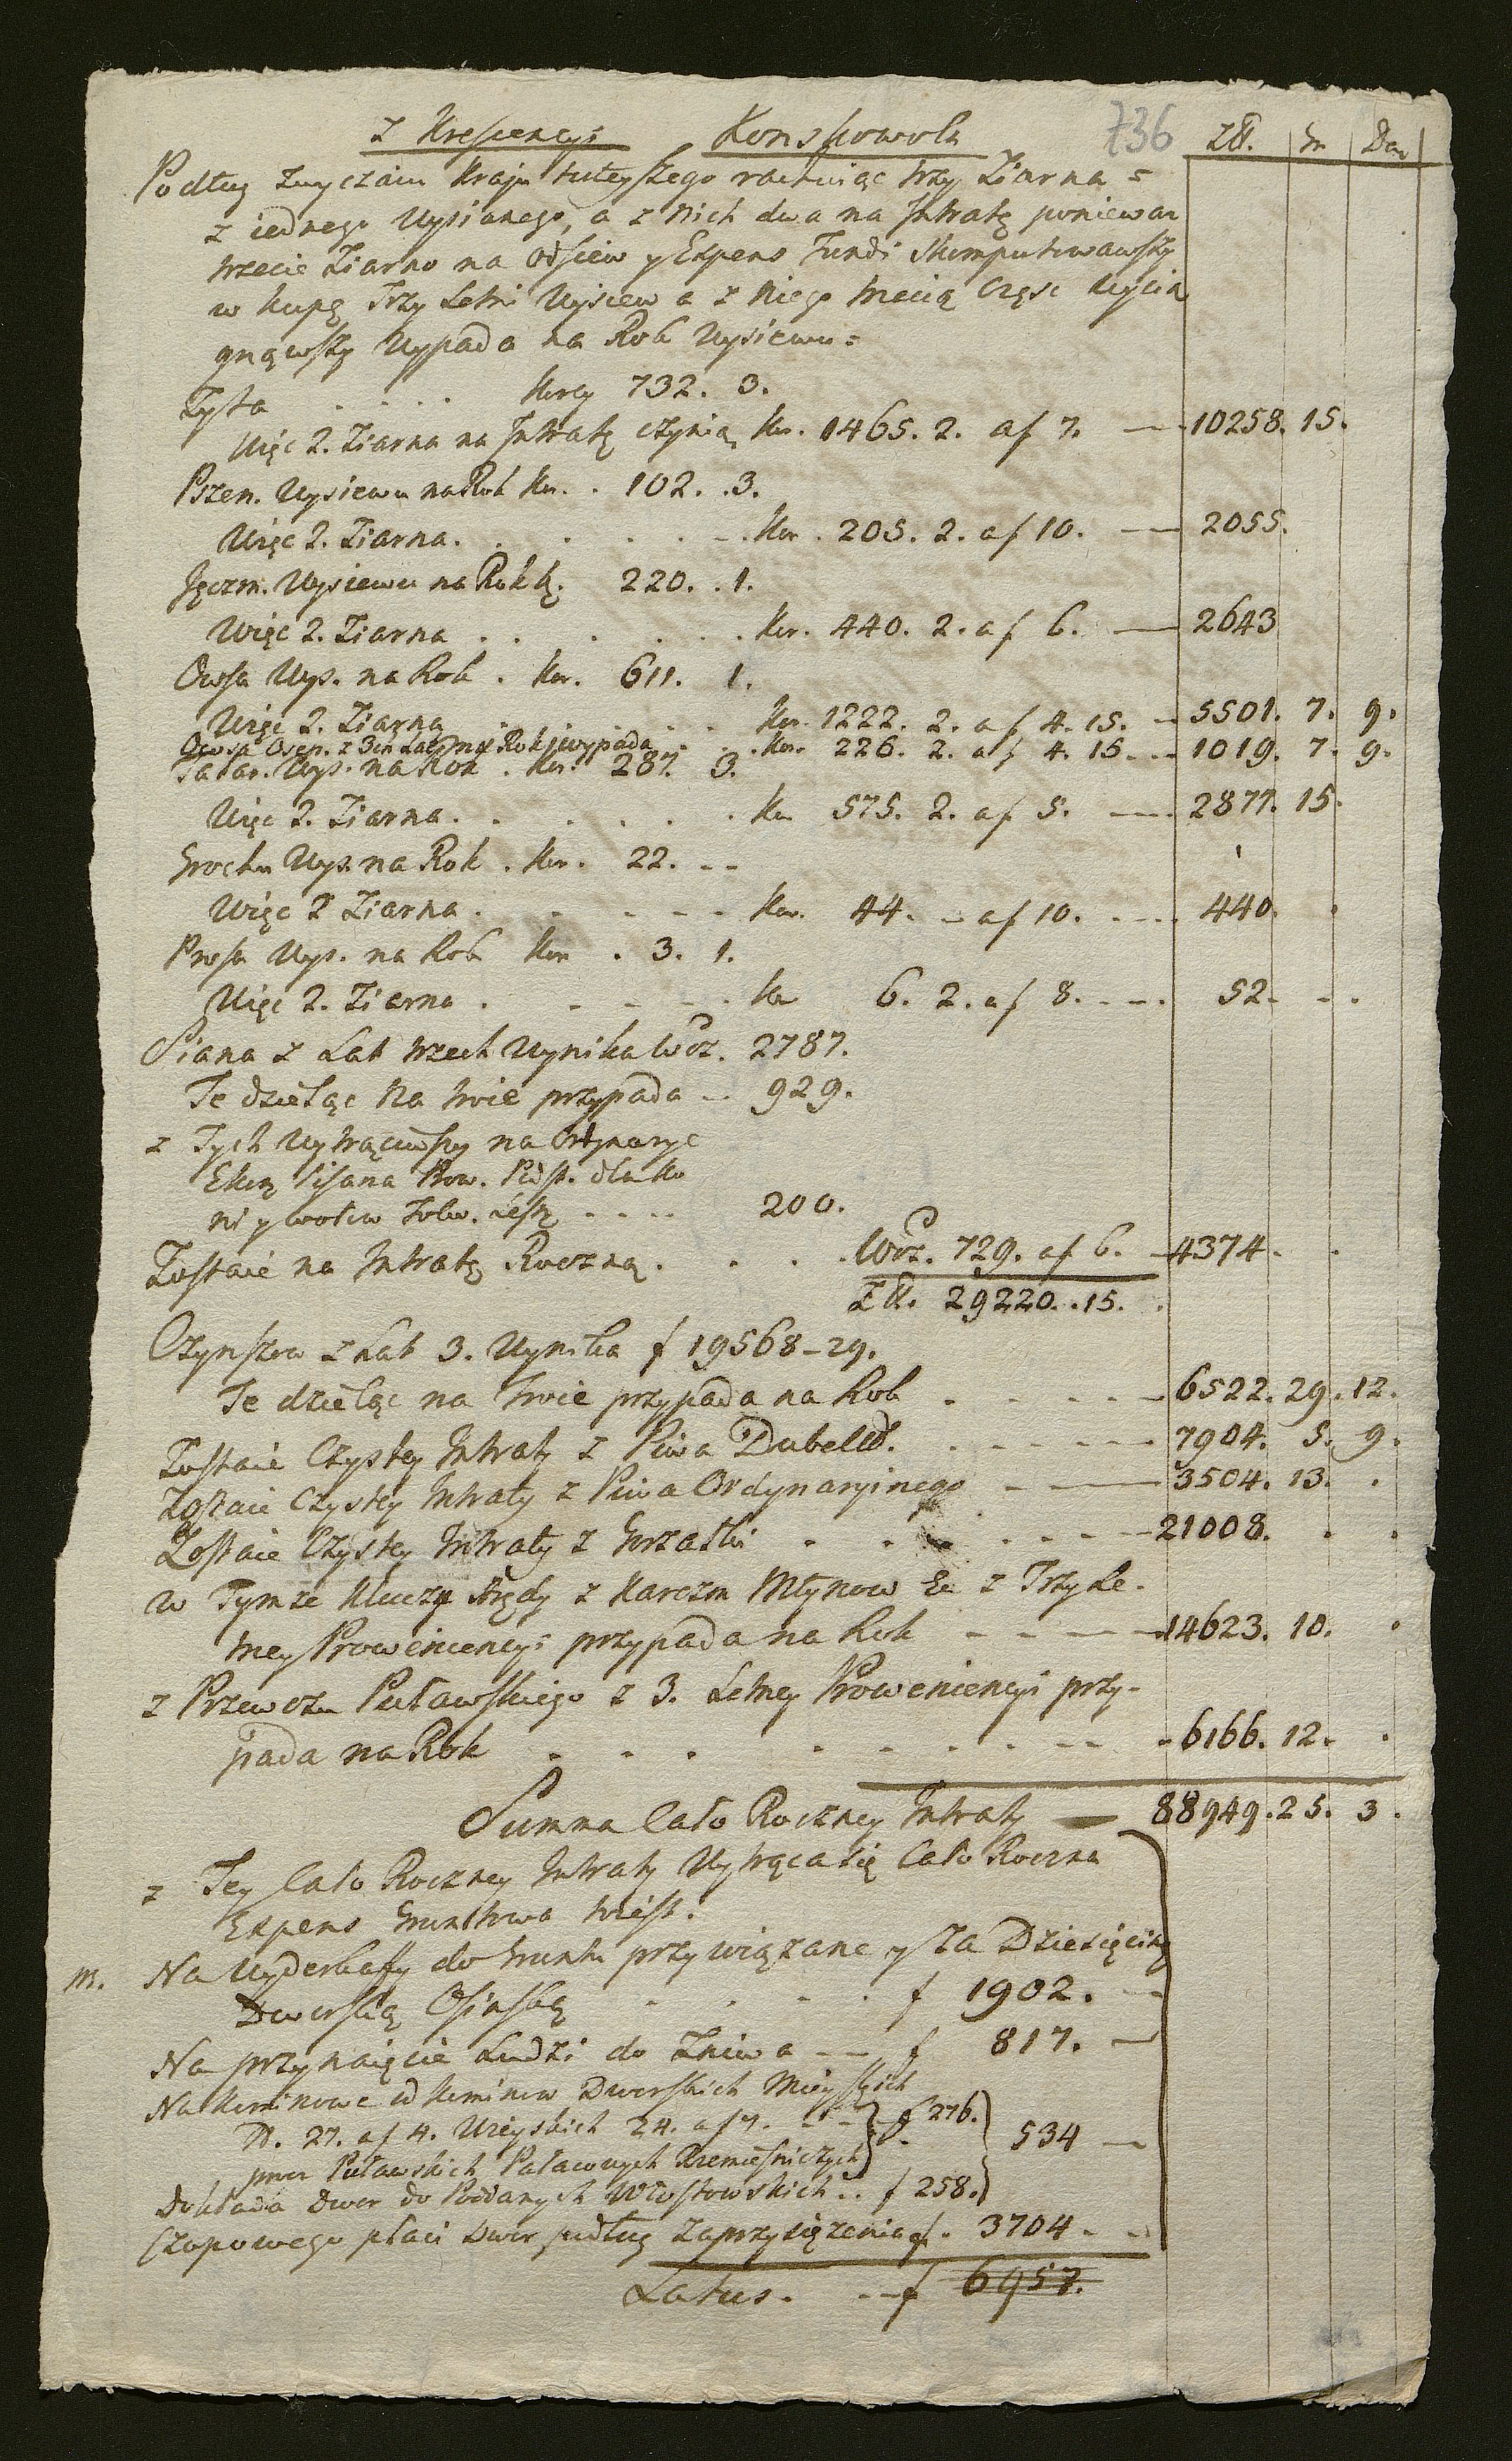 z Krescencyi Konskowola 736 Zł. gr Den
Podług zwyczaiu Kraju tuteyszego rachuiąc trzy Ziarna =
z iednego Wysianego, a z nich dwa na Intratę poniewaz
trzecie Ziarno na odsiew y Expens Fundi skomputowawszy
w kupę Trzy Letni Wysiew a z niego trzecią Częsc wycią
gnąwszy Wypada na Rok Wysiewu =
Zyta . . . . Korcy 732. 3.
Więc 2. Ziarna na Intratę czynią Kor. 1465. 2. af 7. — 10258. 15.
Pszen. Wysiewu na Rok Kor. . 102. . 3.
Więc 2. Ziarna. . . . . . Kor. 205. 2. af 10. — 2055.
Jęczm. Wysiewu na Rok k. 220. . 1.
Więc 2. Ziarna . . . . . . Kor. 440. 2. af 6. — 2643
Owsa Wys. na Rok . Kor. 611. 1.
Więc 2. Ziarna . . . . Kor. 1222. 2. af 4. 15. — 5501. 7. 9.
Owsa Osep. z 3ch Lat na Rok wypada . . Kor. 226. 2. af 4. 15. -- 1019. 7. 9.
Tatar. Wys. na Rok . Kor. 287. 3.
Więc 2. Ziarna. . . . . . . Kor 575. 2. af 5. --- 2877. 15.
Grochu Wys. na Rok . Kor. 22. --
Więc 2 Ziarna . . . . . . Kor. 44. - af 10. --- 440. .
Prosa Wys. na Rok Kor . 3. 1.
Więc 2. Ziarna . . . . . Kor 6. 2. af 8. --- 52. - .
Siana z Lat trzech Wynika Woz. 2787.
Te dzieląc na troie przypada -- 929.
z Tych Wytrąciwszy na Ordynaryę
Ekon. Pisana Prow. Podst. dla ko
ni y wołow Folw. - - - - 200.
Zostaie na Intratę Roczną. . . . Woz. 729. af 6. - 4374. .
Zł. 29220. . 15. .
Czynszow z Lat 3. Wynika f 19568 - 29.
Te dzieląc na troie przypada na Rok . - - - - 6522. 29. 12.
Zostaie Czystey Intraty z Piwa Dubelt. . - - - - 7904. 5. 9.
Zostaie Czystey Intraty z Piwa Ordynaryinego - — 3504. 13. .
Zostaie Czystey Intraty z Gorzałki . . . . - - - 21008. . .
w Tymze Kluczu Arędy z Karczm Młynow &c z Trzy Le.
tney Prowencencyi przypada na Rok - - - - 14623. 10. .
z Przewozu Puławskiego z 3. Letney Prowenencyi przy-
pada na Rok . . . . - - - - 6166. 12. .
Summa Cało Roczney Intraty — 88949. 25. 3.
z Tey Cało Roczney Intraty Wytrąca się Cało Roczna
Expens Gruntowa
m. Na Wyderkaffy do Gruntu przywiązane y za Dziesięcinę
Dworską Osinską . . . . f 1902. --
Na przynaięcie Ludzi do Zniwa -- f 817. —
Na kominowe od kominow Dworskich Mieyskich
N. 27. af 4. Wieyskich 24. af 7. - - f 276.
przez Puławskich Pałacowych Rzemieslniczych 534 —
Dokłada Dwor do Poddanych Włostowskich .. f 258.
Czopowego płaci Dwor podług Zaprzysięzenia f. 3704. - -
Latus. - - f 6957.